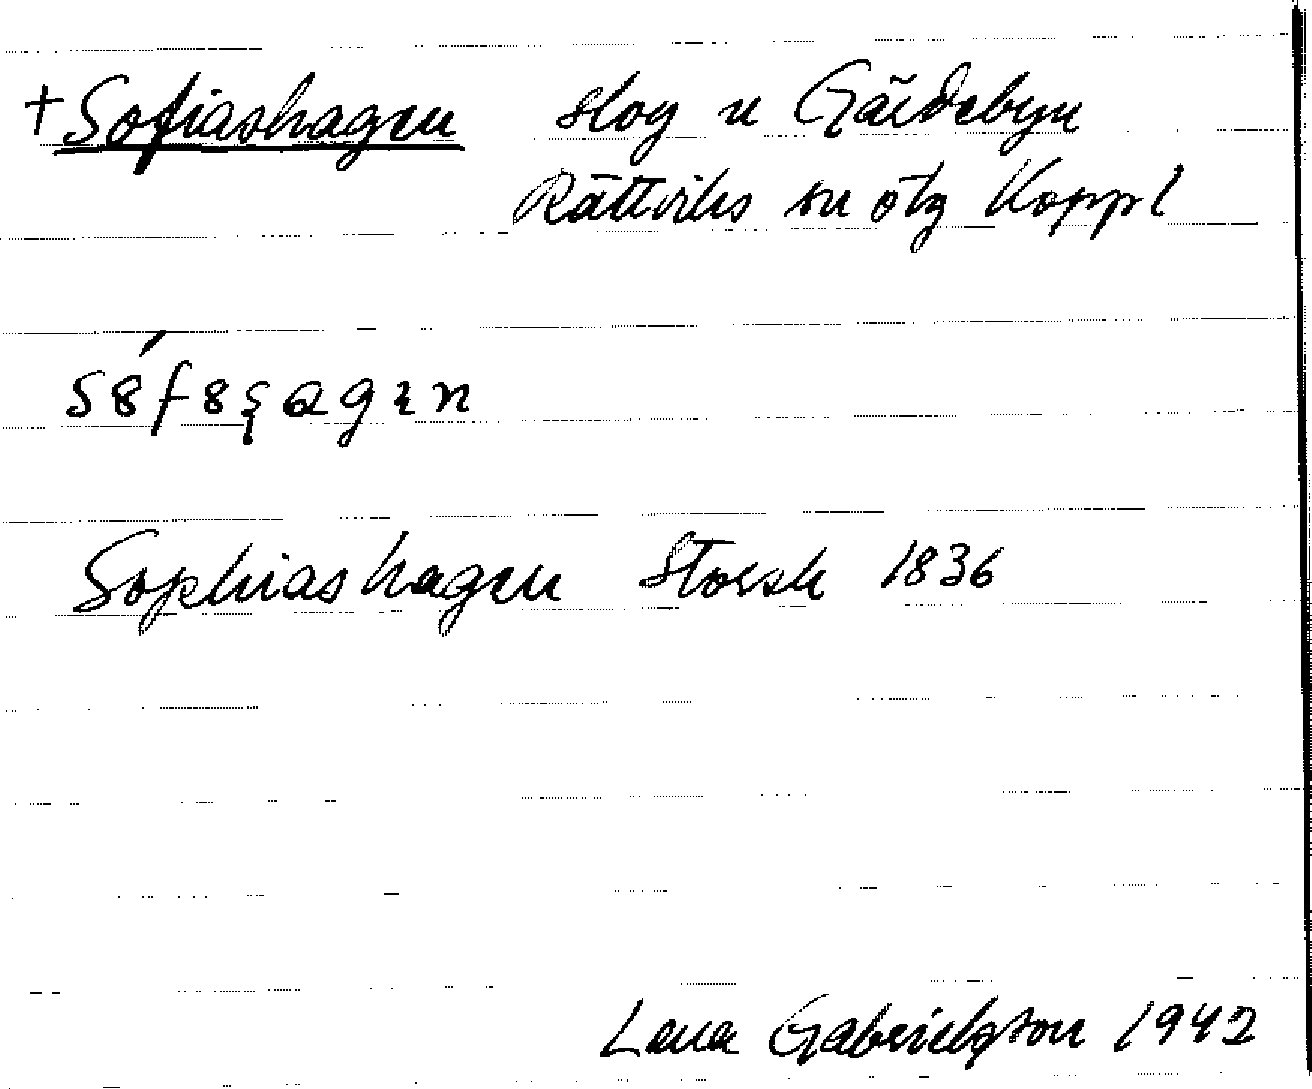 + Sofiashagen slog u Gärdebyn
Rättviks sn ötg Koppl
Sophiashagen Storsk 1836
Lena Gabrielsson 1942